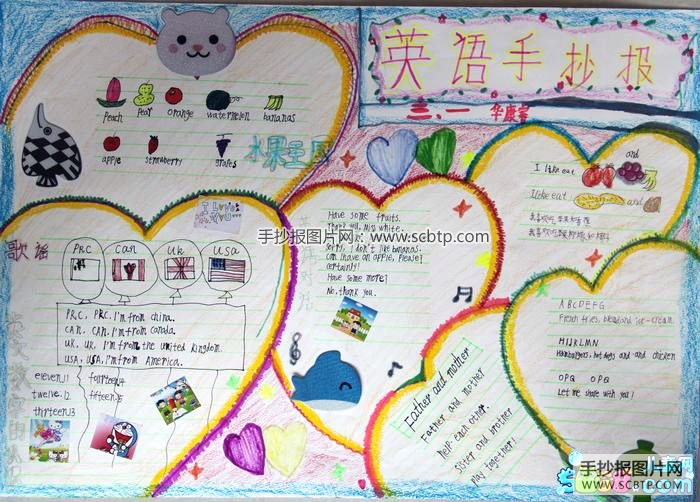 英语手抄报
三、一 华康
peach pear orange watermelon bananas
apple strawberry grapes
水果王国
手抄报图片网：www.scbtp.com
I like eat and
I like eat
歌谣
PRC Can UK USA
PRC, PRC. I'm from China.
CAN, CAN. I'm from Canada.
UK, UK, I'm from the united Kingdom.
USA, USA, I'm from America.
eleven 11 fourteen 14
twelve 12 fifteen 15
thirteen 13
Have some fruits.
Thank you, Miss white.
Sorry, I don't like bananas.
can I have an apple, Please?
certainly!
Have some more?
No. thank you.
Father and mother
Father and mother
Help each other.
Sister and brother
Play together!
A B C D E F G
French fries, bread and ice-cream.
H I J K L M N
Hamburgers, hot dogs and and chicken
O P Q O P Q
Let me share with you!
手抄报图片网
WWW.SCBTP.COM